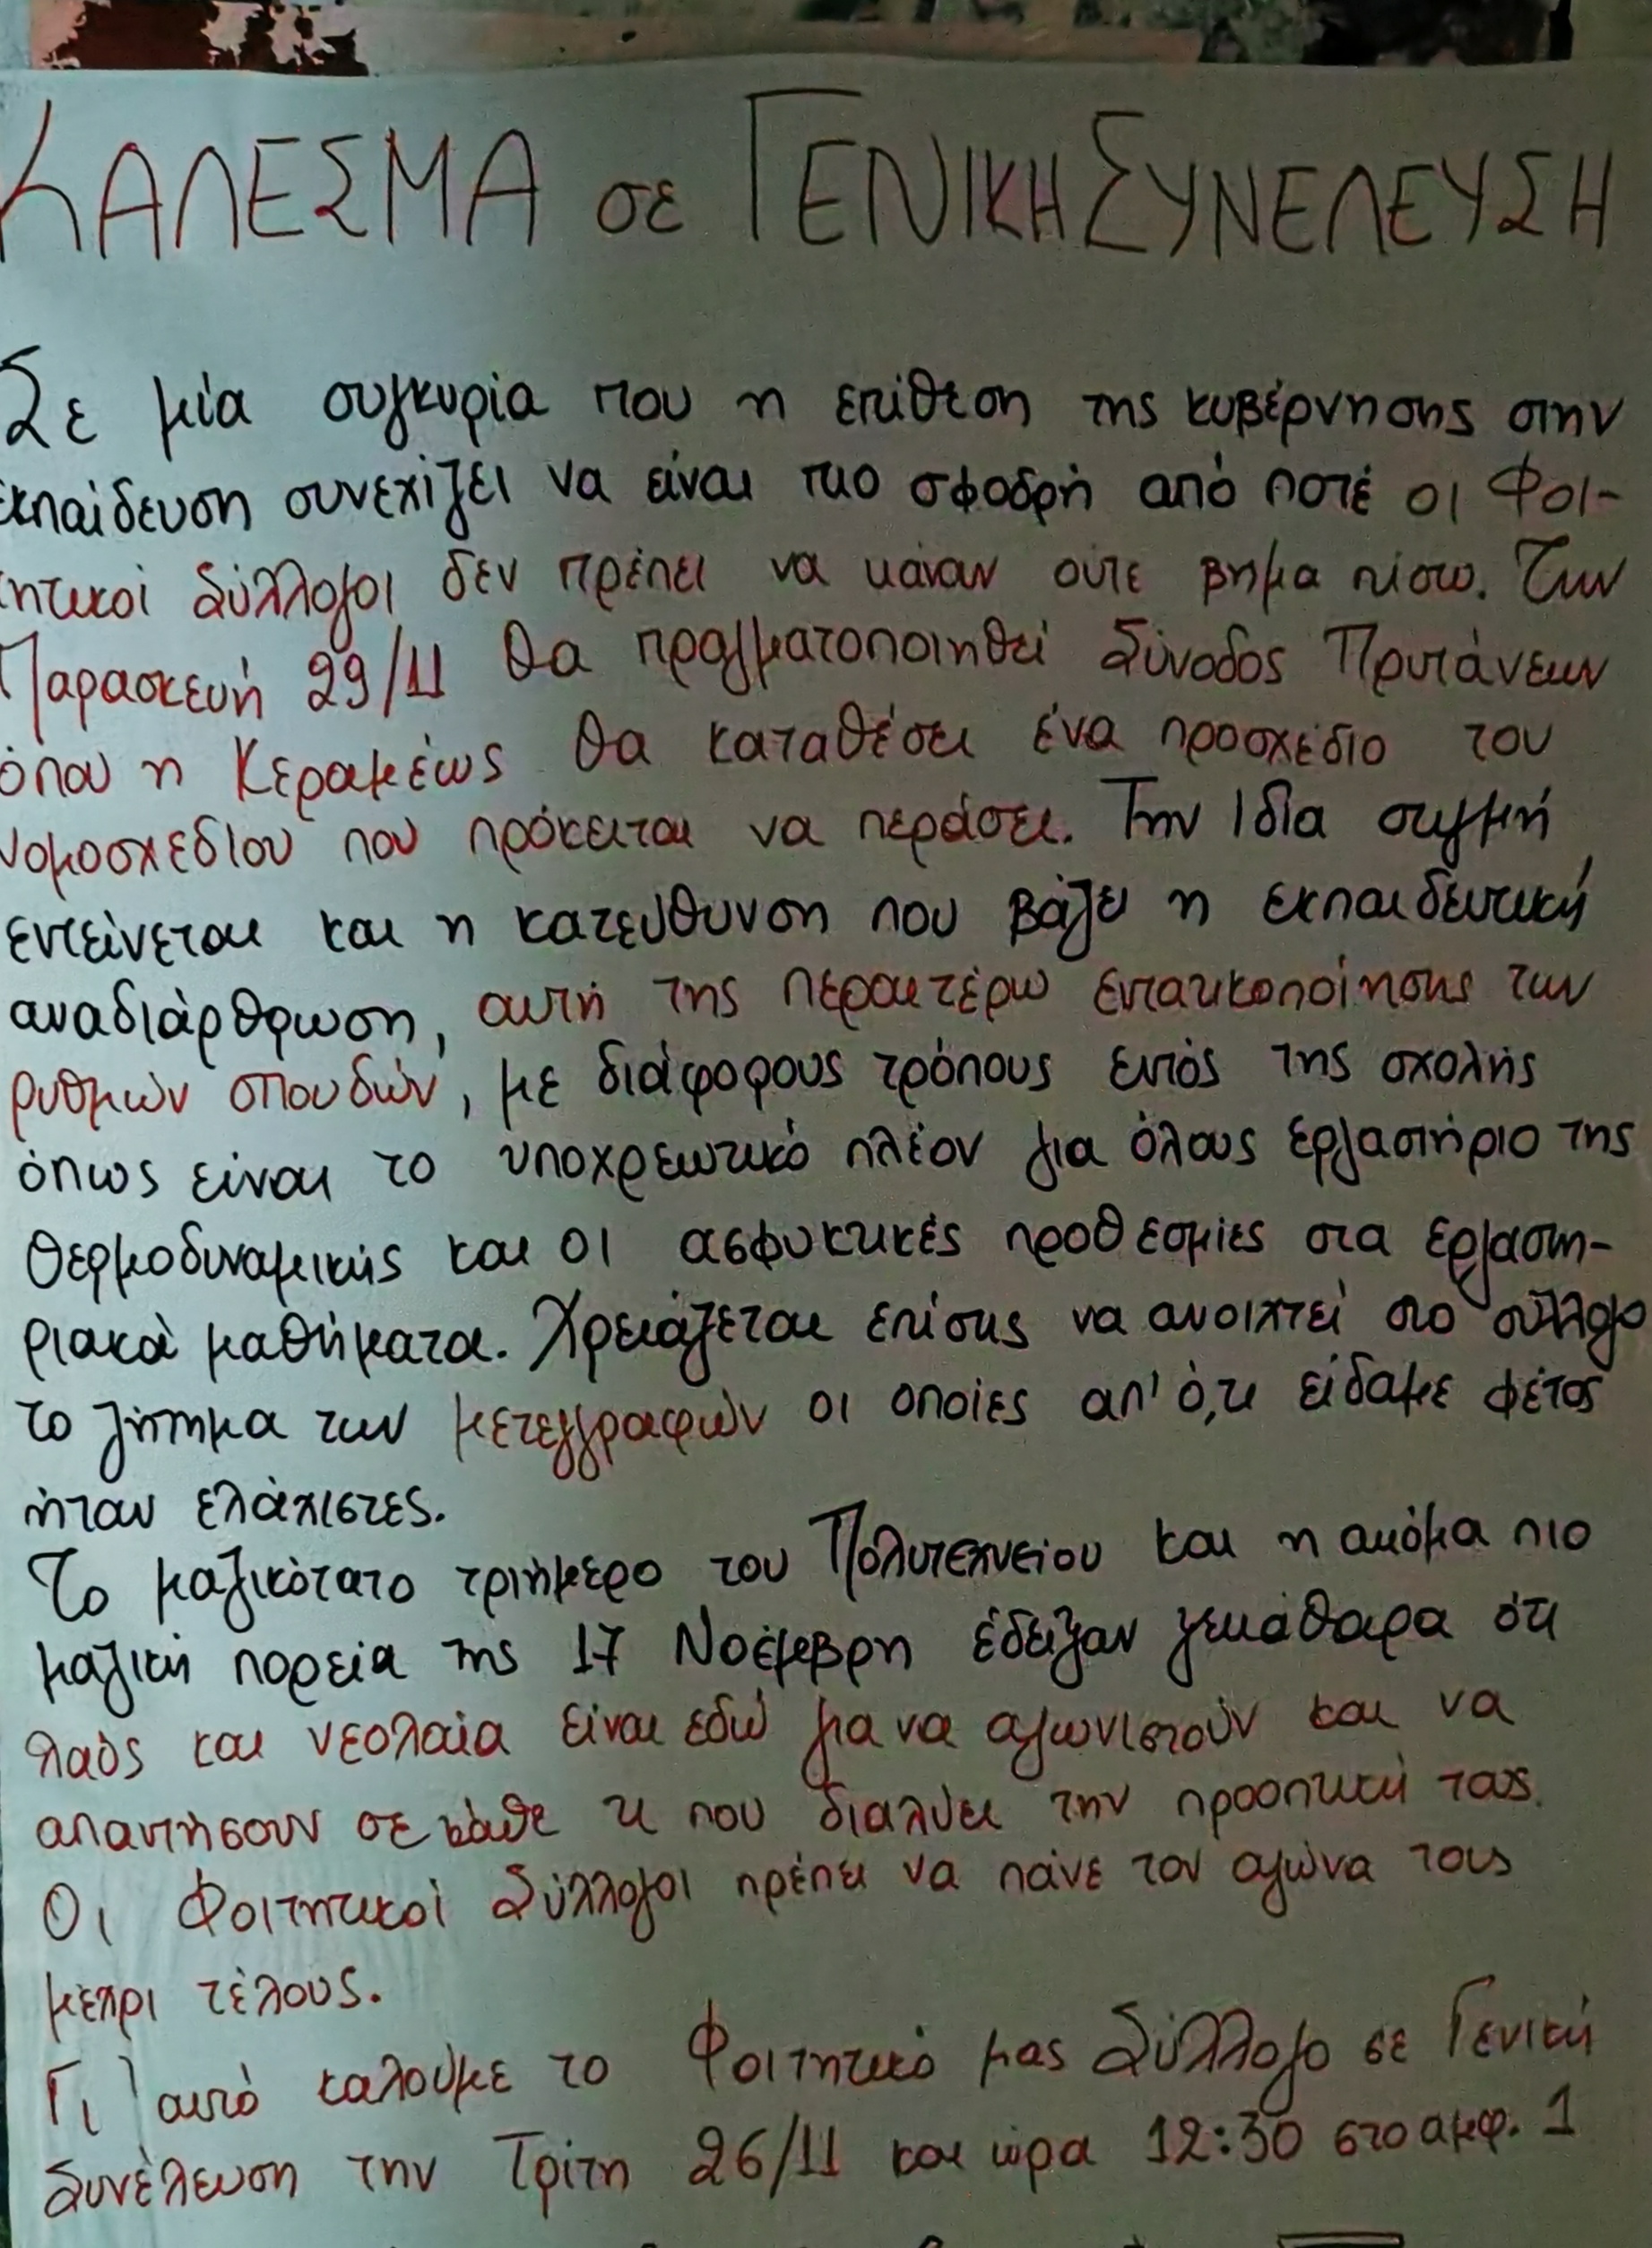 ΚΑΛΕΣΜΑ σε ΓΕΝΙΚΗ ΣΥΝΕΛΕΥΣΗ
Σε μία συγκυρία που η επίθεση της κυβέρνησης στην
εκπαίδευση συνεχίζει να είναι πιο σφοδρή από ποτέ οι Φοι-
τητικοί Σύλλογοι δεν πρέπει να κάναν ούτε βήμα πίσω. Την
Παρασκευή 29/11 θα πραγματοποιηθεί Σύνοδος Πρυτάνεων
όπου η Κεραμέως θα καταθέσει ένα προσχέδιο του
νομοσχεδίου που πρόκειται να περάσει. Την ίδια στιγμή
εντείνεται και η κατεύθυνση που βάζει η εκπαιδευτική
αναδιάρθρωση, αυτή της περαιτέρω εντατικοποίησης των
ρυθμών σπουδών, με διάφορους τρόπους εντός της σχολής
όπως είναι το υποχρεωτικό πλέον για όλους εργαστήριο της
Θερμοδυναμικής και οι ασφυκτικές προθεσμίες στα εργαστη-
ριακά μαθήματα. Χρειάζεται επίσης να ανοιχτεί στο σύλλογο
το ζήτημα των μετεγγραφών οι οποίες απ' ό,τι είδαμε φέτος
ήταν ελάχιστες.
Το μαζικότατο τριήμερο του Πολυτεχνείου και η ακόμα πιο
μαζική πορεία της 17 Νοέμβρη έδειξαν ξεκάθαρα ότι
λαός και νεολαία είναι εδώ για να αγωνιστούν και να
απαντήσουν σε κάθε τι που διαλύει την προοπτική τους.
Οι Φοιτητικοί Σύλλογοι πρέπει να πάνε τον αγώνα τους
μέχρι τέλους.
Γι' αυτό καλούμε το Φοιτητικό μας Σύλλογο σε Γενική
Συνέλευση την Τρίτη 26/11 και ώρα 12:30 στο αμφ. 1